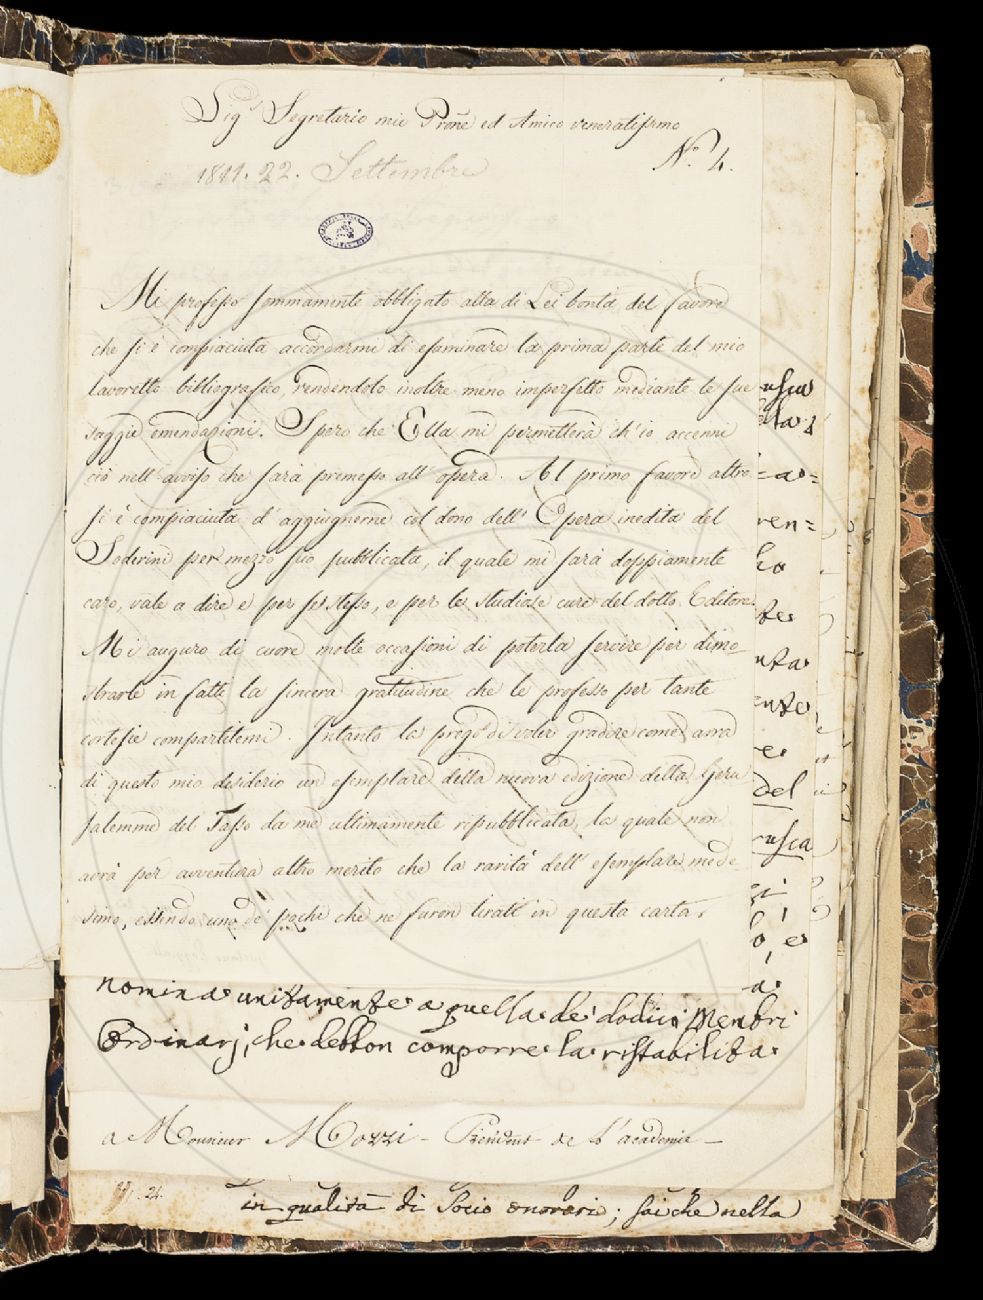 Sigr Segretario mio Prone ed Amico veneratissmo
No. 4.
1811. 22. Settembre
Mi professo sommamente obbligato alla di Lei bontà del favore
che si è compiaciuta accordarmi di esaminare la prima parte del mio
lavoretto bibliografico, rendendolo inoltre meno imperfetto mediante le sue
saggie emendazioni. Spero che Ella mi permetterà ch'io accenni
ciò nell'avviso che sarà premesso all'opera. Al primo favore altro
si è compiaciuta d'aggiugnerne col dono dell'Opera inedita del
Soderini per mezzo suo pubblicata, il quale mi sarà doppiamente
caro, vale a dire e per se stesso, e per le studiose cure del dotto Editore.
Mi auguro di cuore molte occasioni di poterla servire per dimo-
strarle in fatti la sincera gratitudine che le professo per tante
cortesie compartitemi. Intanto la prego di voler gradire come arra
di questo mio desiderio un esemplare della nuova edizione della Geru
salemme del Tasso da me ultimamente ripubblicata, la quale non
avrà per avventura altro merito che la rarità dell'esemplare mede-
simo, essendo uno de' pochi che ne furon tirati in questa carta.
usca
ren=
ho
del
rusca
nomina unitamente a quella de' dodici Membri
Ordinarj, che debbon comporre la ristabilita
a Monsieur Mozzi - President de l'academie -
in qualità di Socio onorari; sai che nella